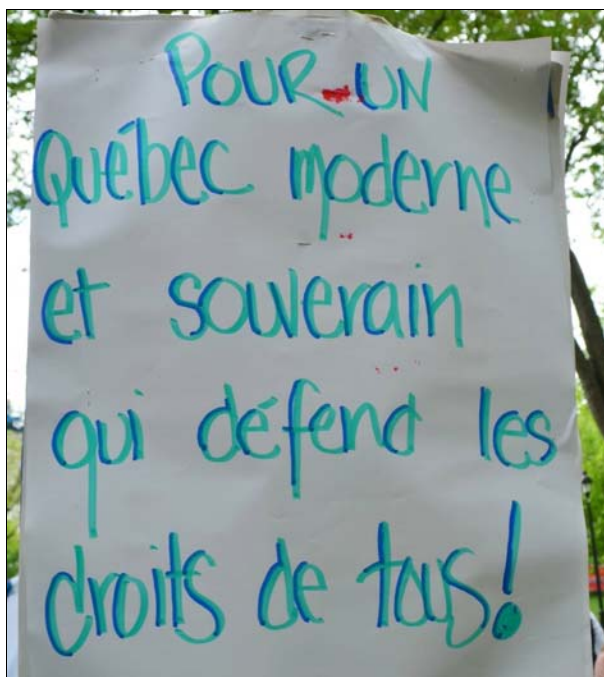 POUR UN
Québec moderne
et souverain
qui défend les
droits de tous!